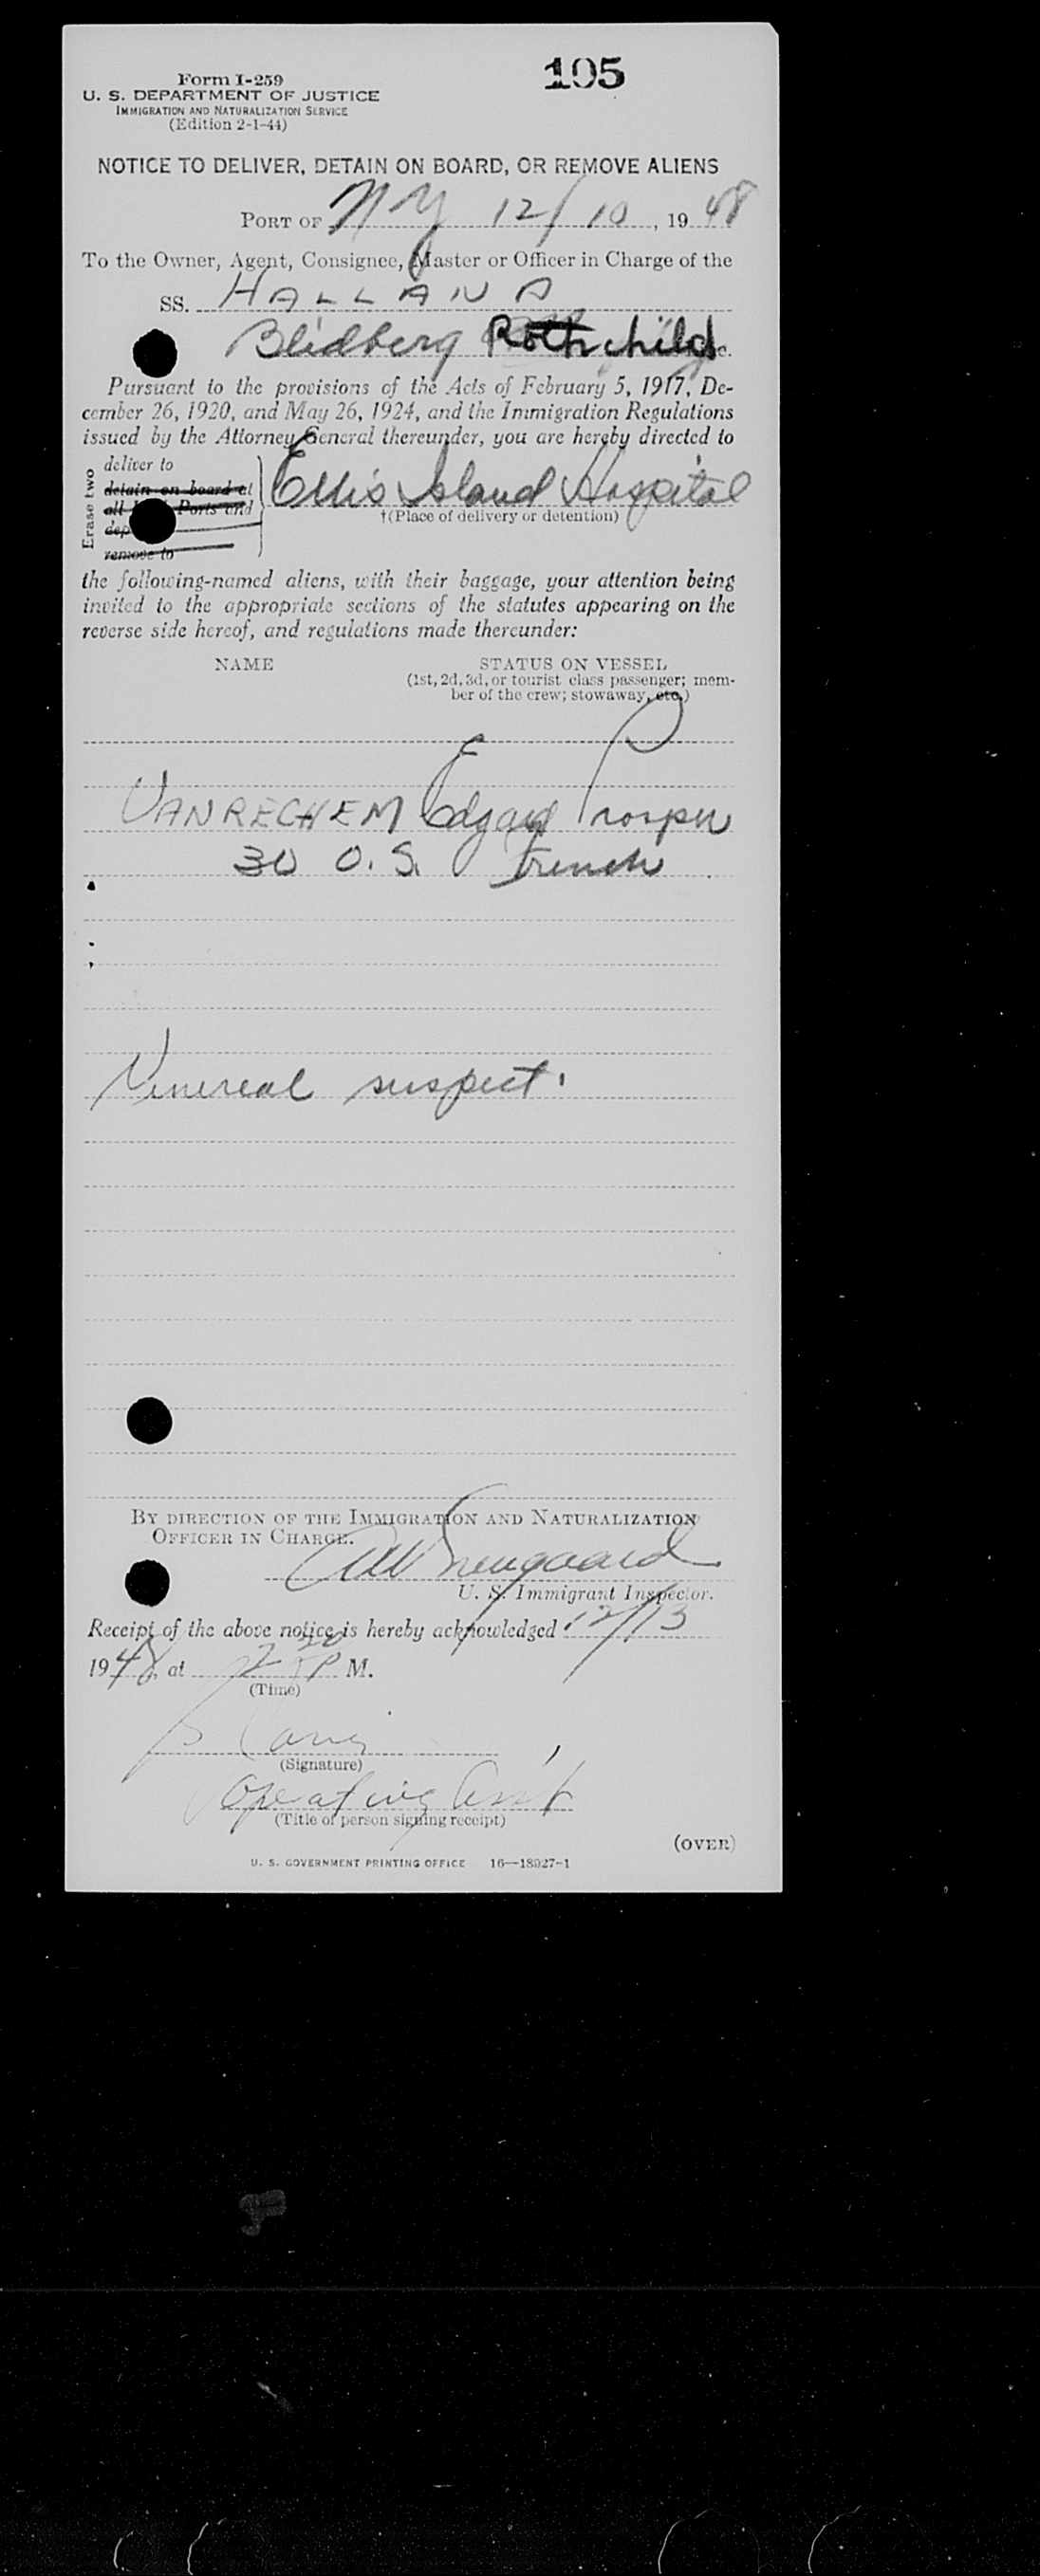 105
Form I-259
U. S. DEPARTMENT OF JUSTICE
IMMIGRATION AND NATURALIZATION SERVICE
(Edition 2-1-44)
NOTICE TO DELIVER, DETAIN ON BOARD, OR REMOVE ALIENS
PORT OF NY 12/10, 1948
To the Owner, Agent, Consignee, Master or Officer in Charge of the
SS. HALLAND
Blidberg Rothchild
Pursuant to the provisions of the Acts of February 5, 1917, De-
cember 26, 1920, and May 26, 1924, and the Immigration Regulations
issued by the Attorney General thereunder, you are hereby directed to
Erase two
deliver to
detain on board at
all Ports and
dep
remove to
Ellis Island Hospital
†(Place of delivery or detention)
the following-named aliens, with their baggage, your attention being
invited to the appropriate sections of the statutes appearing on the
reverse side hereof, and regulations made thereunder:
NAME STATUS ON VESSEL
(1st, 2d, 3d, or tourist class passenger; mem-
ber of the crew; stowaway, etc.)
VANRECHEM Edgard Prosper
30 O.S. French
Venereal suspect.
BY DIRECTION OF THE IMMIGRATION AND NATURALIZATION
OFFICER IN CHARGE.
U. S. Immigrant Inspector.
Receipt of the above notice is hereby acknowledged 12/13
1948, at 2 20 P M.
(Time)
(Signature)
Operating Ass't
(Title of person signing receipt)
(OVER)
U. S. GOVERNMENT PRINTING OFFICE 16—18927-1